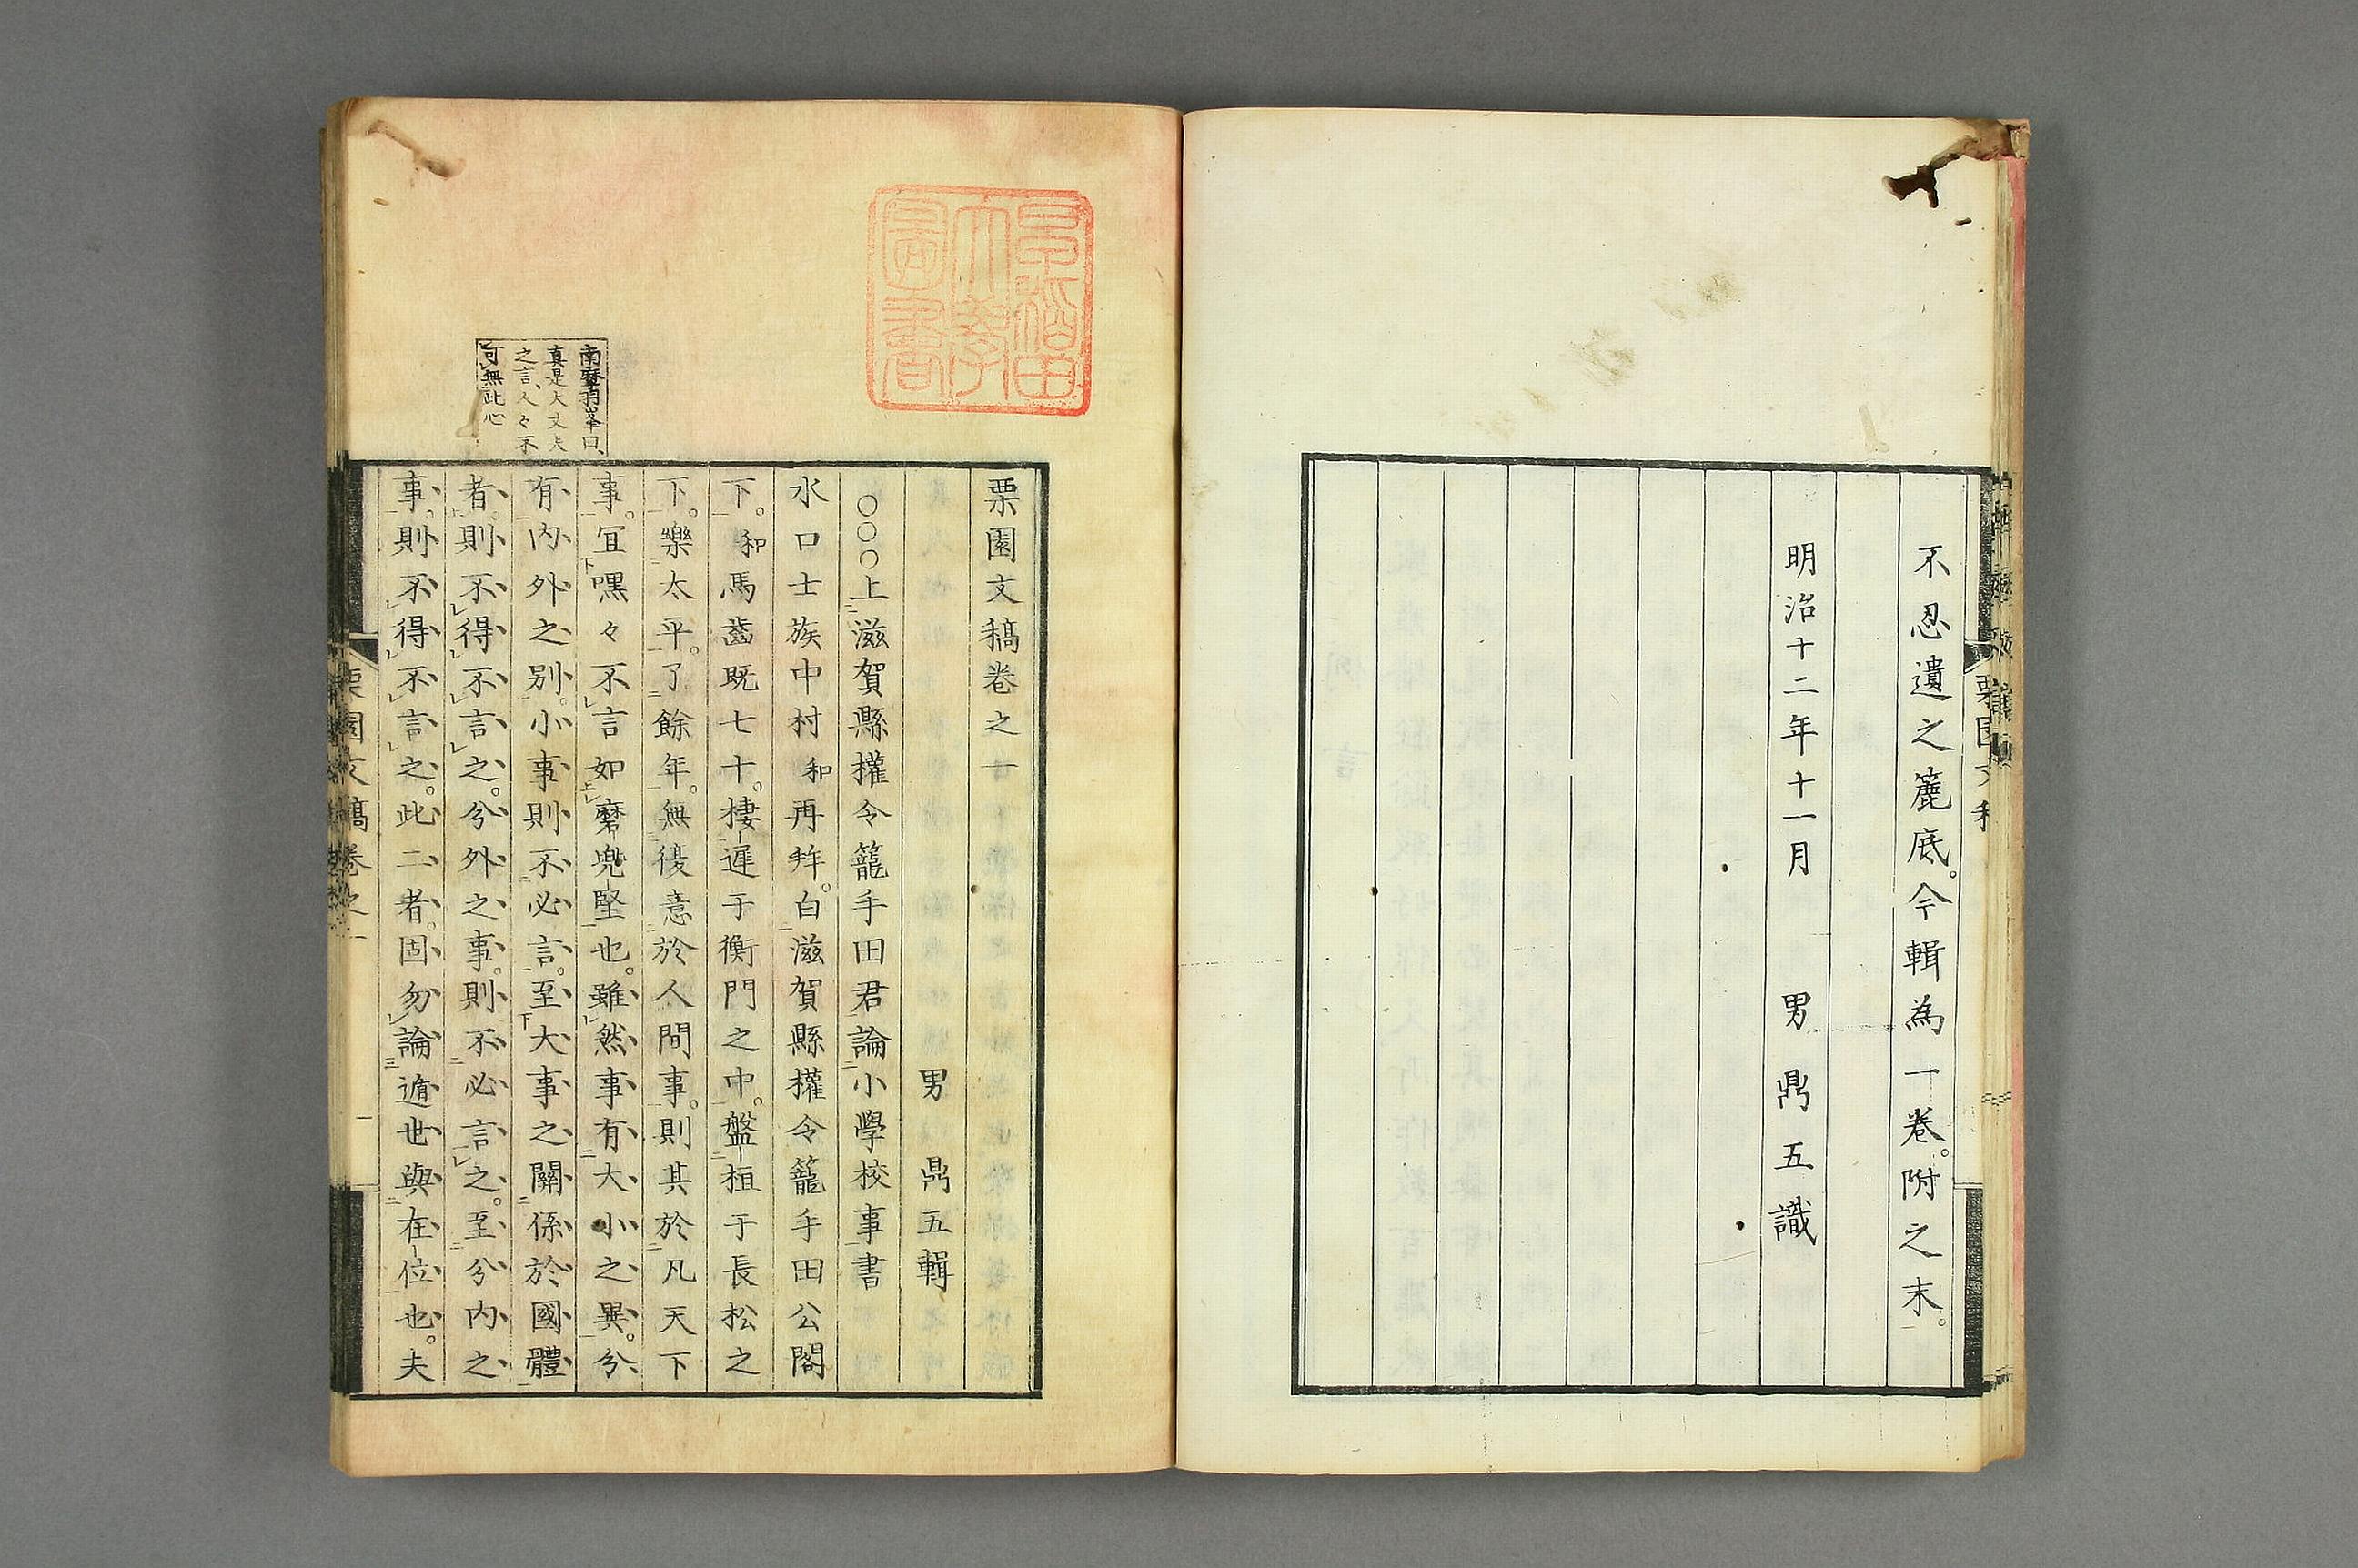 不忍遺之簏底。今輯為一卷。附之末。
明治十二年十一月　男鼎五識
早稲田大學圖書
栗園文稿卷之一
男　鼎五輯
○○○上滋賀縣權令籠手田君論小學校事書
水口士族中村和再拜。白滋賀縣權令籠手田公閣
下。和馬齒既七十。棲遲于衡門之中。盤桓于長松之
下。樂太平。了餘年。無復意於人間事。則其於凡天下
事。宜嘿々不言如磨兜堅也。雖然事有大小之異。分
有內外之別。小事則不必言。至大事之關係於國體
者。則不得不言之。分外之事。則不必言之。至分內之
事。則不得不言之。此二者。固勿論遁世與在位也。夫
南摩羽峯曰、
真是大丈夫
之言、人々不
可無此心
栗園文稿卷之一